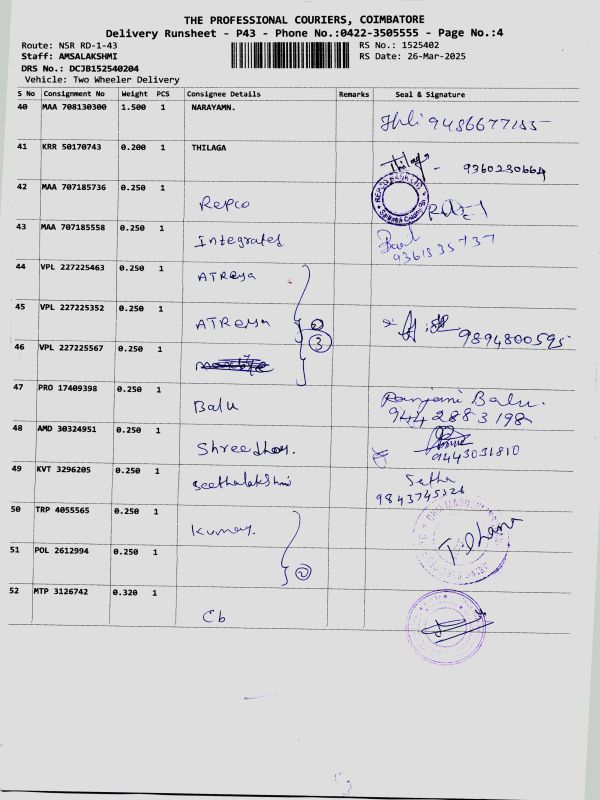 THE PROFESSIONAL COURIERS, COIMBATORE
Delivery Runsheet - P43 - Phone No.:0422-3505555 - Page No.:4
Route: NSR RD-1-43 RS No.: 1525402
Staff: AMSALAKSHMI RS Date: 26-Mar-2025
DRS No.: DCJB152540204
Vehicle: Two Wheeler Delivery
S No Consignment No Weight PCS Consignee Details Remarks Seal & Signature
40 MAA 708130300 1.500 1 NARAYAMN.
41 KRR 50170743 0.200 1 THILAGA
Thilaga - 9360230664
42 MAA 707185736 0.250 1
Repco
43 MAA 707185558 0.250 1
Integrates
44 VPL 227225463 0.250 1
ATReya
45 VPL 227225352 0.250 1
ATReya
9894800595
3
46 VPL 227225567 0.250 1
47 PRO 17409398 0.250 1
Balu
Ranjani Balu.
9442883198
48 AMD 30324951 0.250 1
9443031810
49 KVT 3296205 0.250 1
Seethalakshmi
Setha
50 TRP 4055565 0.250 1
Kumar.
51 POL 2612994 0.250 1
2
52 MTP 3126742 0.320 1
Cb